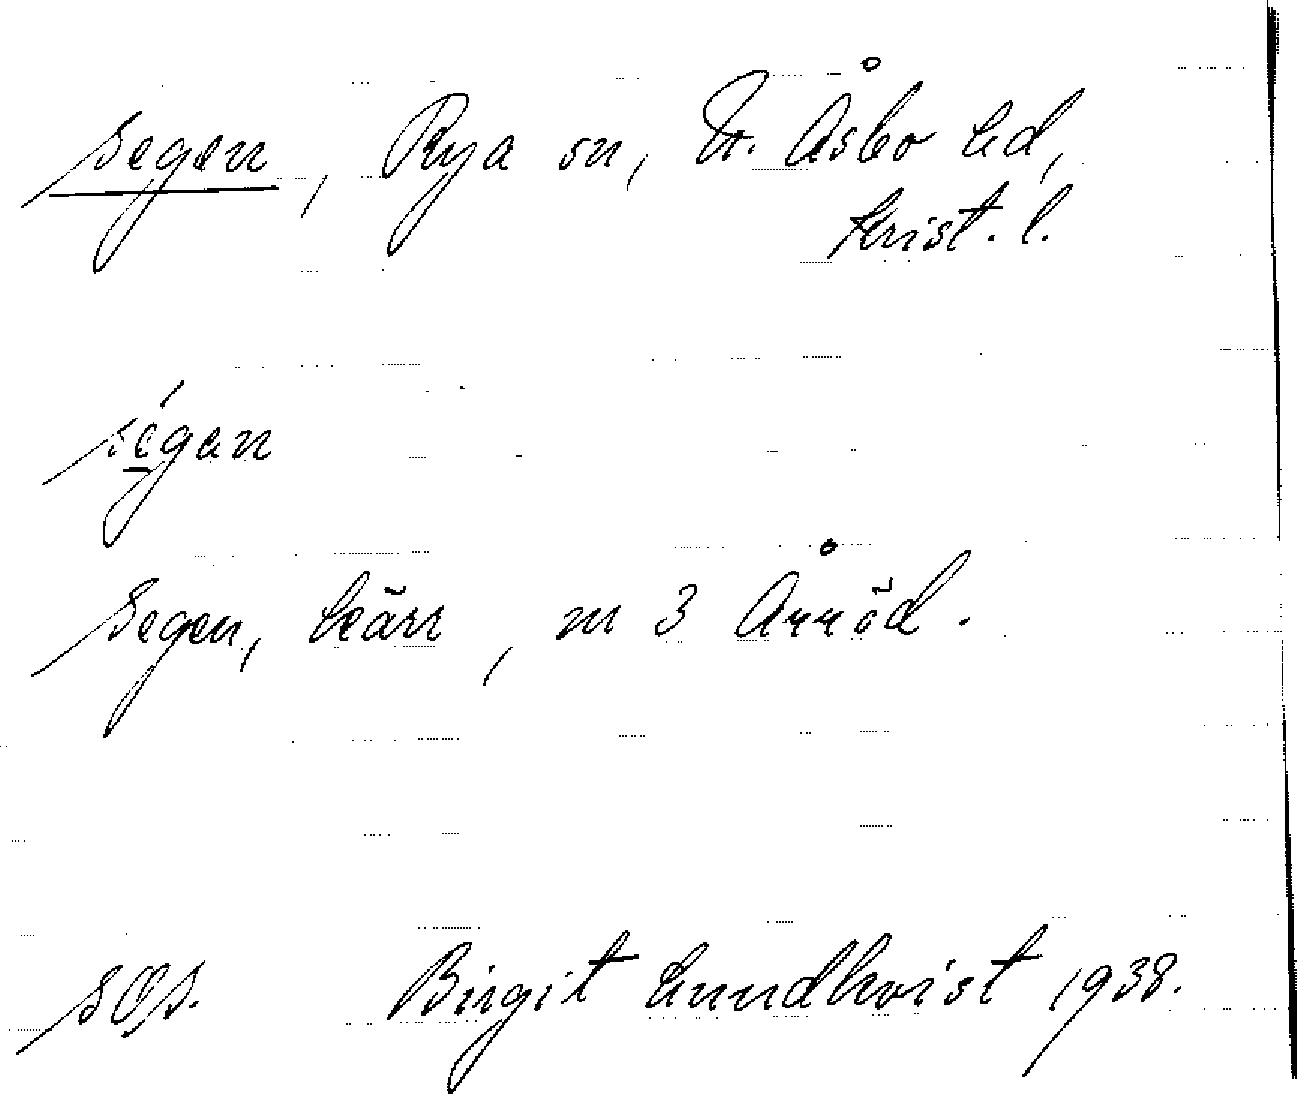 Segen, Rya sn, N. Åsbo hd,
Krist. l.
ségan
Segen, kärr, n 3 Arröd.
SOS. Birgit Lundkvist 1938.